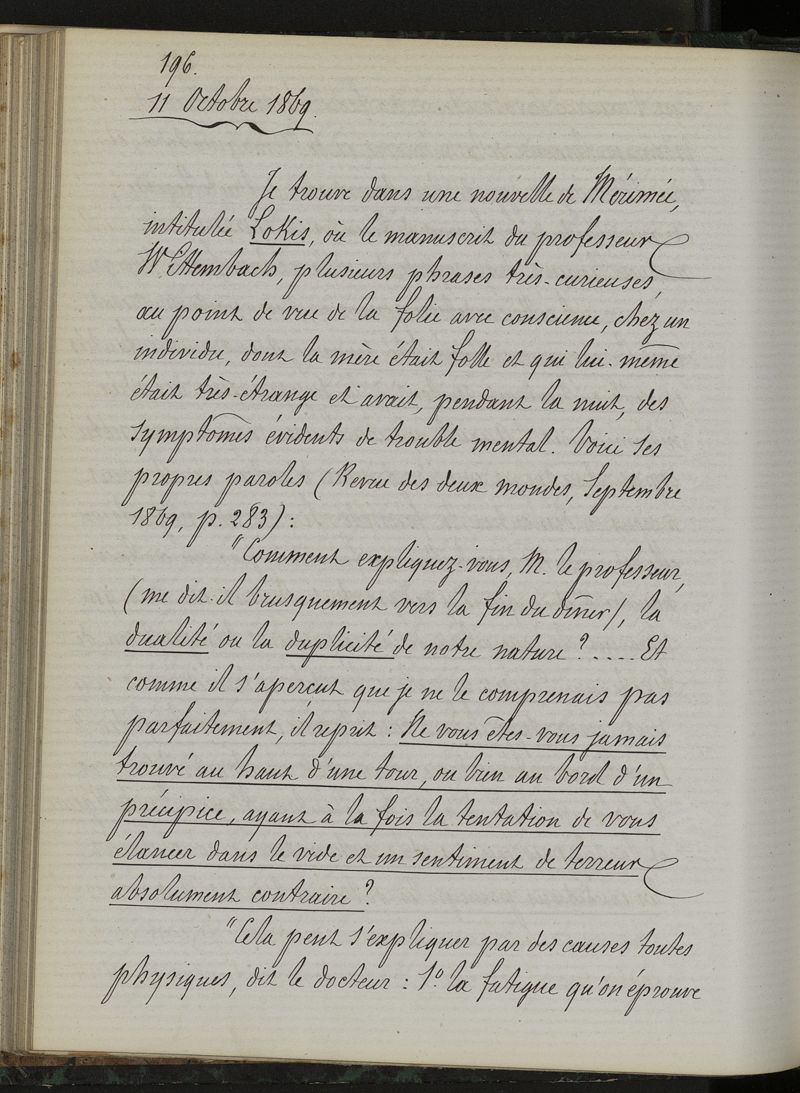 196.
11 Octobre 1869.
Je trouve dans une nouvelle de Mérimée,
intitulée Lokis, où le manuscrit du professeur
Wittembach, plusieurs phrases très-curieuses,
au point de vue de la folie avec conscience, chez un
individu, dont la mère était folle et qui lui-même
était très-étrange et avait, pendant la nuit, des
symptômes évidents de trouble mental. Voici ses
propres paroles (Revue des deux mondes, Septembre
1869, p. 283):
"Comment expliquez-vous, M. le professeur,
(me dit-il brusquement vers la fin du dîner), la
dualité ou la duplicité de notre nature ?..... Et
comme il s'aperçut que je ne le comprenais pas
parfaitement, il reprit : Ne vous êtes-vous jamais
trouvé au haut d'une tour, ou bien au bord d'un
précipice, ayant à la fois la tentation de vous
élancer dans le vide et un sentiment de terreur
absolument contraire ?
"Cela peut s'expliquer par des causes toutes
physiques, dit le docteur : 1.° la fatigue qu'on éprouve